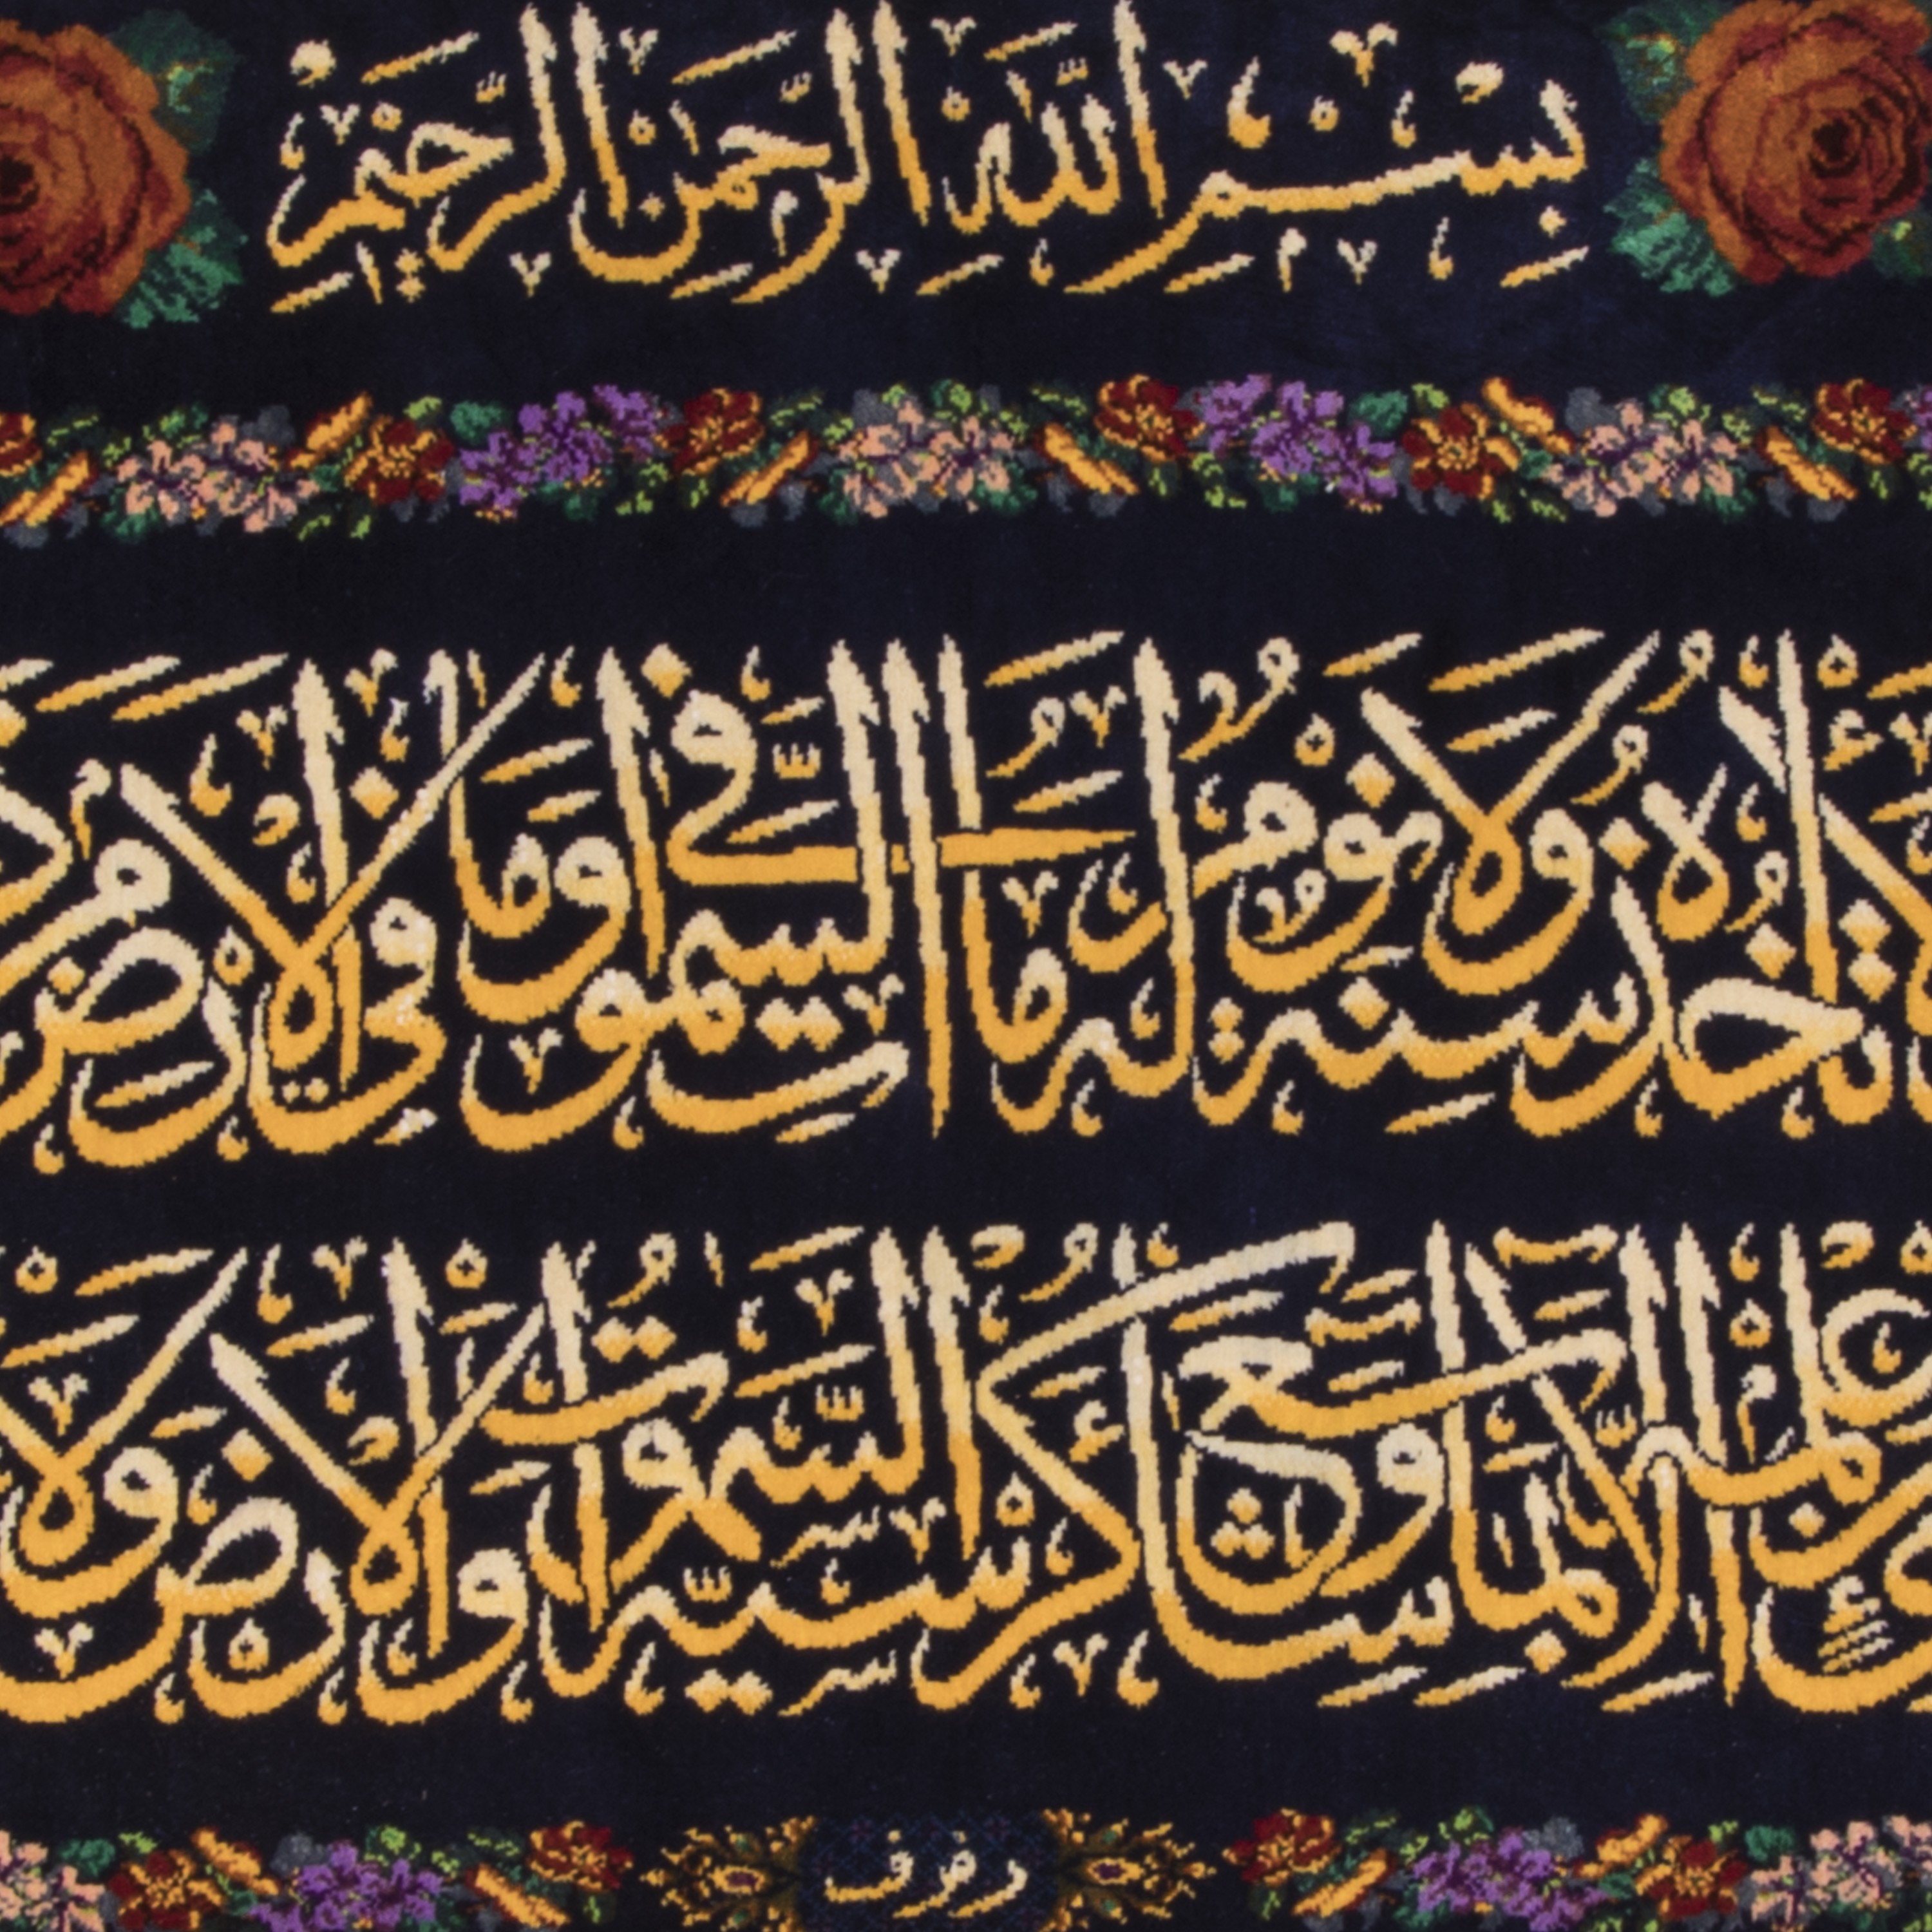 بِسْمِ اللّٰهِ الرَّحْمٰنِ الرَّحِيمِ
تَأْخُذُهُ سِنَةٌ وَلَا نَوْمٌ لَهُ مَا فِي السَّمٰوٰتِ وَمَا فِي الْاَرْضِ
مِنْ عِلْمِهٖ اِلَّا بِمَا شَاءَ وَسِعَ كُرْسِيُّهُ السَّمٰوٰتِ وَالْاَرْضَ وَلَا